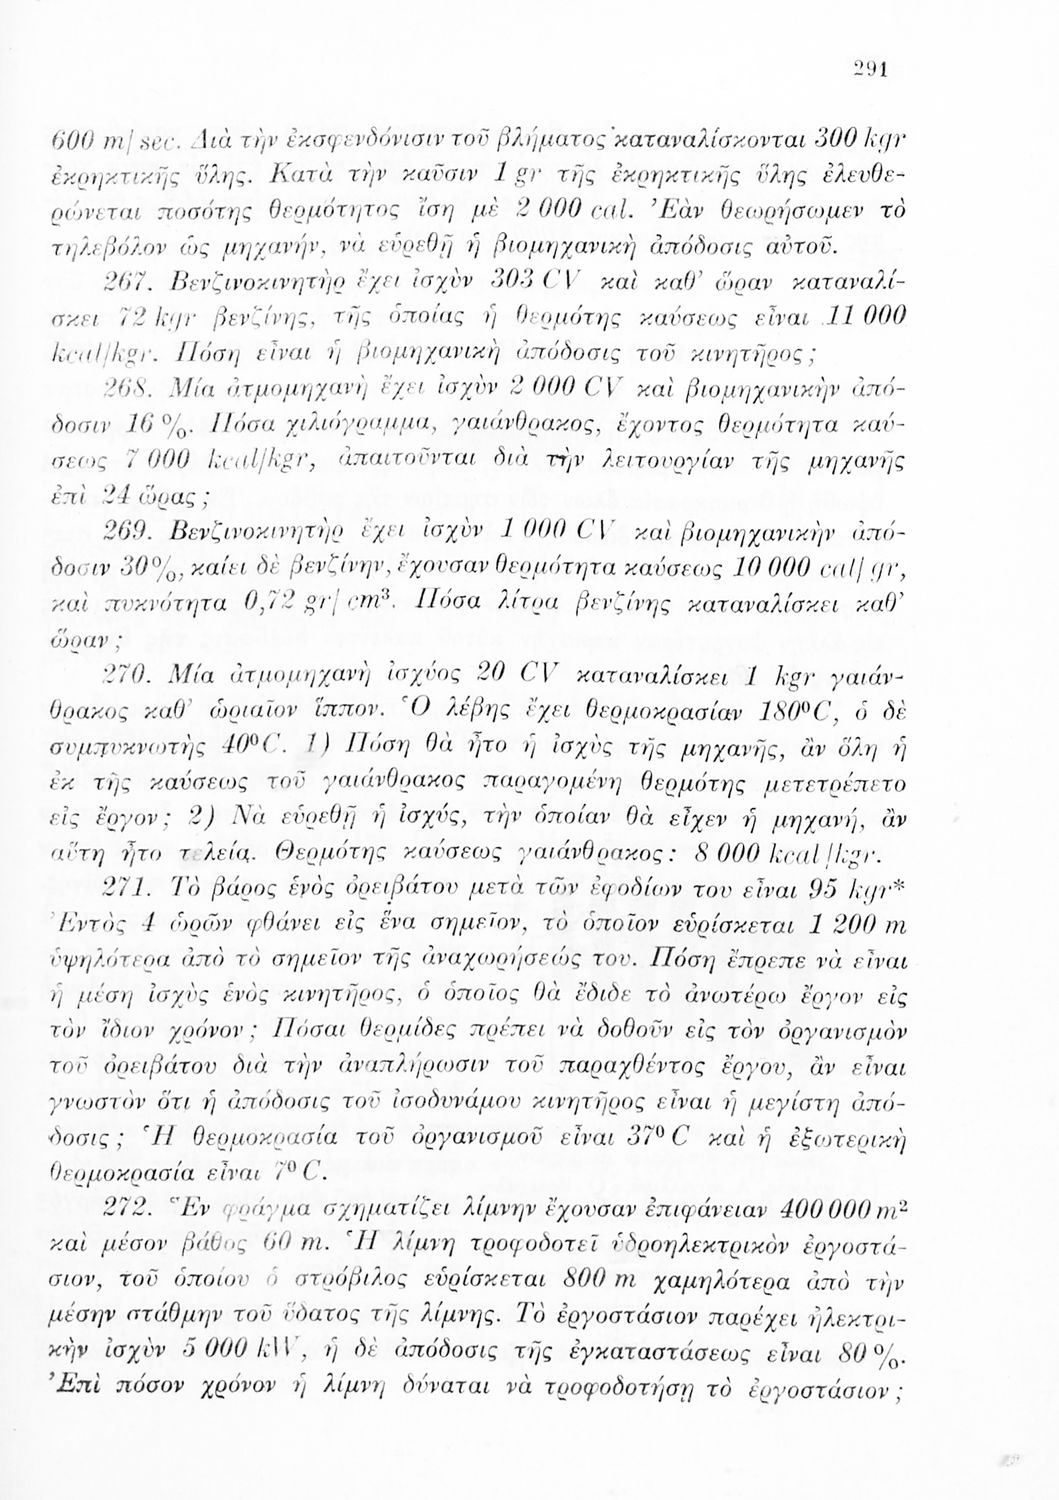 291
600 m/sec. Διὰ τὴν ἐκσφενδόνισιν τοῦ βλήματος καταναλίσκονται 300 kgr
ἐκρηκτικῆς ὕλης. Κατὰ τὴν καῦσιν 1 gr τῆς ἐκρηκτικῆς ὕλης ἐλευθε-
ρώνεται ποσότης θερμότητος ἴση μὲ 2 000 cal. Ἐὰν θεωρήσωμεν τὸ
τηλεβόλον ὡς μηχανήν, νὰ εὑρεθῇ ἡ βιομηχανικὴ ἀπόδοσις αὐτοῦ.
267. Βενζινοκινητὴρ ἔχει ἰσχὺν 303 CV καὶ καθ’ ὥραν καταναλί-
σκει 72 kgr βενζίνης, τῆς ὁποίας ἡ θερμότης καύσεως εἶναι 11 000
kcal/kgr. Πόση εἶναι ἡ βιομηχανικὴ ἀπόδοσις τοῦ κινητῆρος;
268. Μία ἀτμομηχανὴ ἔχει ἰσχὺν 2 000 CV καὶ βιομηχανικὴν ἀπό-
δοσιν 16 %. Πόσα χιλιόγραμμα, γαιάνθρακος, ἔχοντος θερμότητα καύ-
σεως 7 000 kcal/kgr, ἀπαιτοῦνται διὰ τὴν λειτουργίαν τῆς μηχανῆς
ἐπὶ 24 ὥρας;
269. Βενζινοκινητὴρ ἔχει ἰσχὺν 1 000 CV καὶ βιομηχανικὴν ἀπό-
δοσιν 30%, καίει δὲ βενζίνην, ἔχουσαν θερμότητα καύσεως 10 000 cal/gr,
καὶ πυκνότητα 0,72 gr/cm³. Πόσα λίτρα βενζίνης καταναλίσκει καθ’
ὥραν;
270. Μία ἀτμομηχανὴ ἰσχύος 20 CV καταναλίσκει 1 kgr γαιάν-
θρακος καθ’ ὡριαῖον ἵππον. Ὁ λέβης ἔχει θερμοκρασίαν 180⁰C, ὁ δὲ
συμπυκνωτὴς 40⁰C. 1) Πόση θὰ ἦτο ἡ ἰσχὺς τῆς μηχανῆς, ἂν ὅλη ἡ
ἐκ τῆς καύσεως τοῦ γαιάνθρακος παραγομένη θερμότης μετετρέπετο
εἰς ἔργον; 2) Νὰ εὑρεθῇ ἡ ἰσχύς, τὴν ὁποίαν θὰ εἶχεν ἡ μηχανή, ἂν
αὕτη ἦτο τελεία. Θερμότης καύσεως γαιάνθρακος: 8 000 kcal/kgr.
271. Τὸ βάρος ἑνὸς ὀρειβάτου μετὰ τῶν ἐφοδίων του εἶναι 95 kgr*
Ἐντὸς 4 ὡρῶν φθάνει εἰς ἕνα σημεῖον, τὸ ὁποῖον εὑρίσκεται 1 200 m
ὑψηλότερα ἀπὸ τὸ σημεῖον τῆς ἀναχωρήσεώς του. Πόση ἔπρεπε νὰ εἶναι
ἡ μέση ἰσχὺς ἑνὸς κινητῆρος, ὁ ὁποῖος θὰ ἔδιδε τὸ ἀνωτέρω ἔργον εἰς
τὸν ἴδιον χρόνον; Πόσαι θερμίδες πρέπει νὰ δοθοῦν εἰς τὸν ὀργανισμὸν
τοῦ ὀρειβάτου διὰ τὴν ἀναπλήρωσιν τοῦ παραχθέντος ἔργου, ἂν εἶναι
γνωστὸν ὅτι ἡ ἀπόδοσις τοῦ ἰσοδυνάμου κινητῆρος εἶναι ἡ μεγίστη ἀπό-
δοσις; Ἡ θερμοκρασία τοῦ ὀργανισμοῦ εἶναι 37⁰ C καὶ ἡ ἐξωτερικὴ
θερμοκρασία εἶναι 7⁰ C.
272. Ἓν φράγμα σχηματίζει λίμνην ἔχουσαν ἐπιφάνειαν 400 000 m²
καὶ μέσον βάθος 60 m. Ἡ λίμνη τροφοδοτεῖ ὑδροηλεκτρικὸν ἐργοστά-
σιον, τοῦ ὁποίου ὁ στρόβιλος εὑρίσκεται 800 m χαμηλότερα ἀπὸ τὴν
μέσην στάθμην τοῦ ὕδατος τῆς λίμνης. Τὸ ἐργοστάσιον παρέχει ἠλεκτρι-
κὴν ἰσχὺν 5 000 kW, ἡ δὲ ἀπόδοσις τῆς ἐγκαταστάσεως εἶναι 80 %.
Ἐπὶ πόσον χρόνον ἡ λίμνη δύναται νὰ τροφοδοτήσῃ τὸ ἐργοστάσιον;